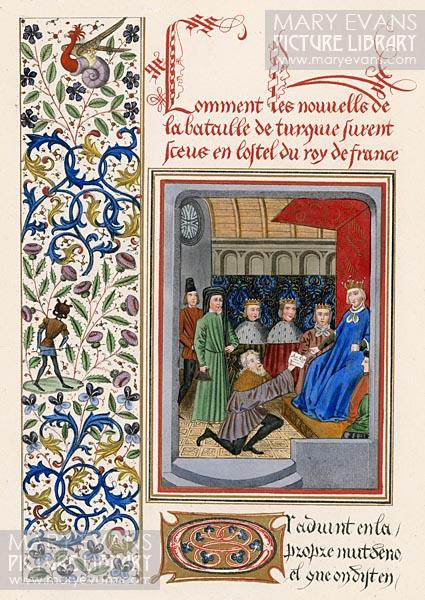 MARY EVANS
PICTURE LIBRARY
www.maryevans.com
Comment les nouvelles de
la bataille de turquie furent
sceus en lostel du roy de france
Y aduint en la
propre nuit de no
el que on dist en
MARY EVANS
PICTURE LIBRARY
www.maryevans.com